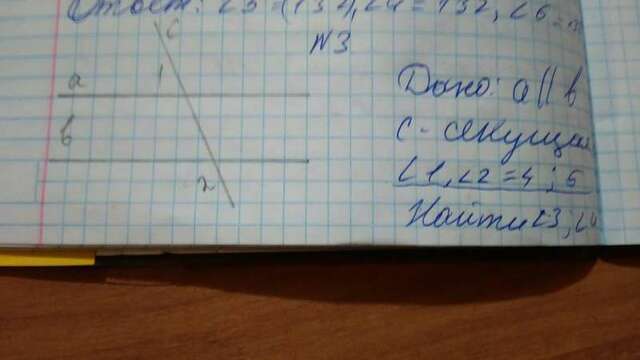 Ответ: ∠5 = 132, ∠4 = 132, ∠6
N3
c
a
1
b
2
Дано: a || b
c - секущая
∠1, ∠2 = 4 ; 5
Найти ∠3; ∠4